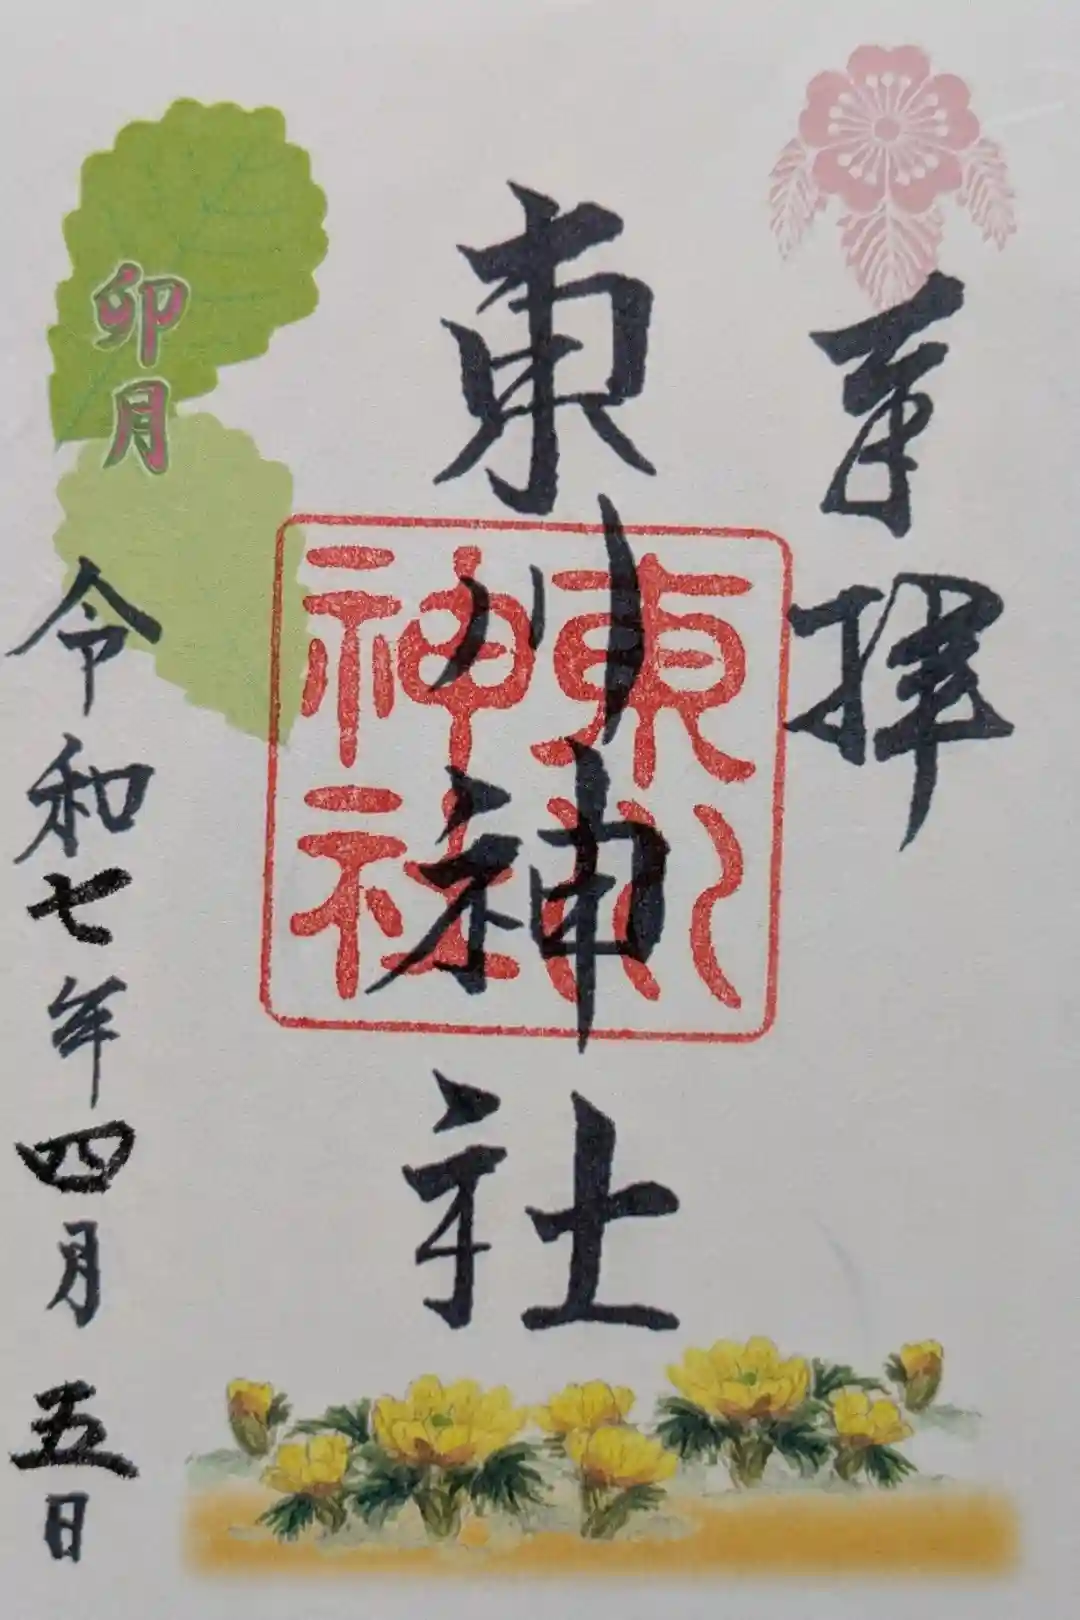 奉拝
東川神社
東川
神社
卯月
令和七年四月五日